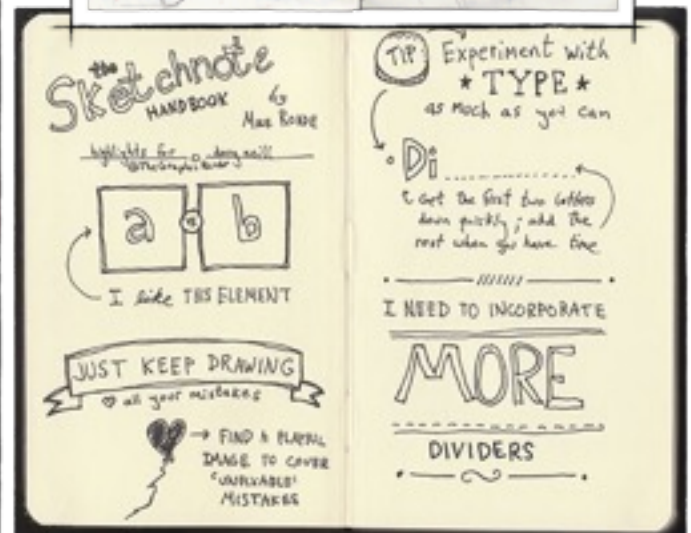 the
Sketchnote
HANDBOOK
by
Mike Rohde
highlights for doug neill
@TheGraphicRecorder
a vs b
I like THIS ELEMENT
JUST KEEP DRAWING
♡ all your mistakes
→ FIND A PLAYFUL
IMAGE TO COVER
'UNFIXABLE'
MISTAKES
TIP
Experiment with
* TYPE *
as much as you can
Di
Get the first two letters
down quickly; add the
rest when you have time
I NEED TO INCORPORATE
MORE
DIVIDERS